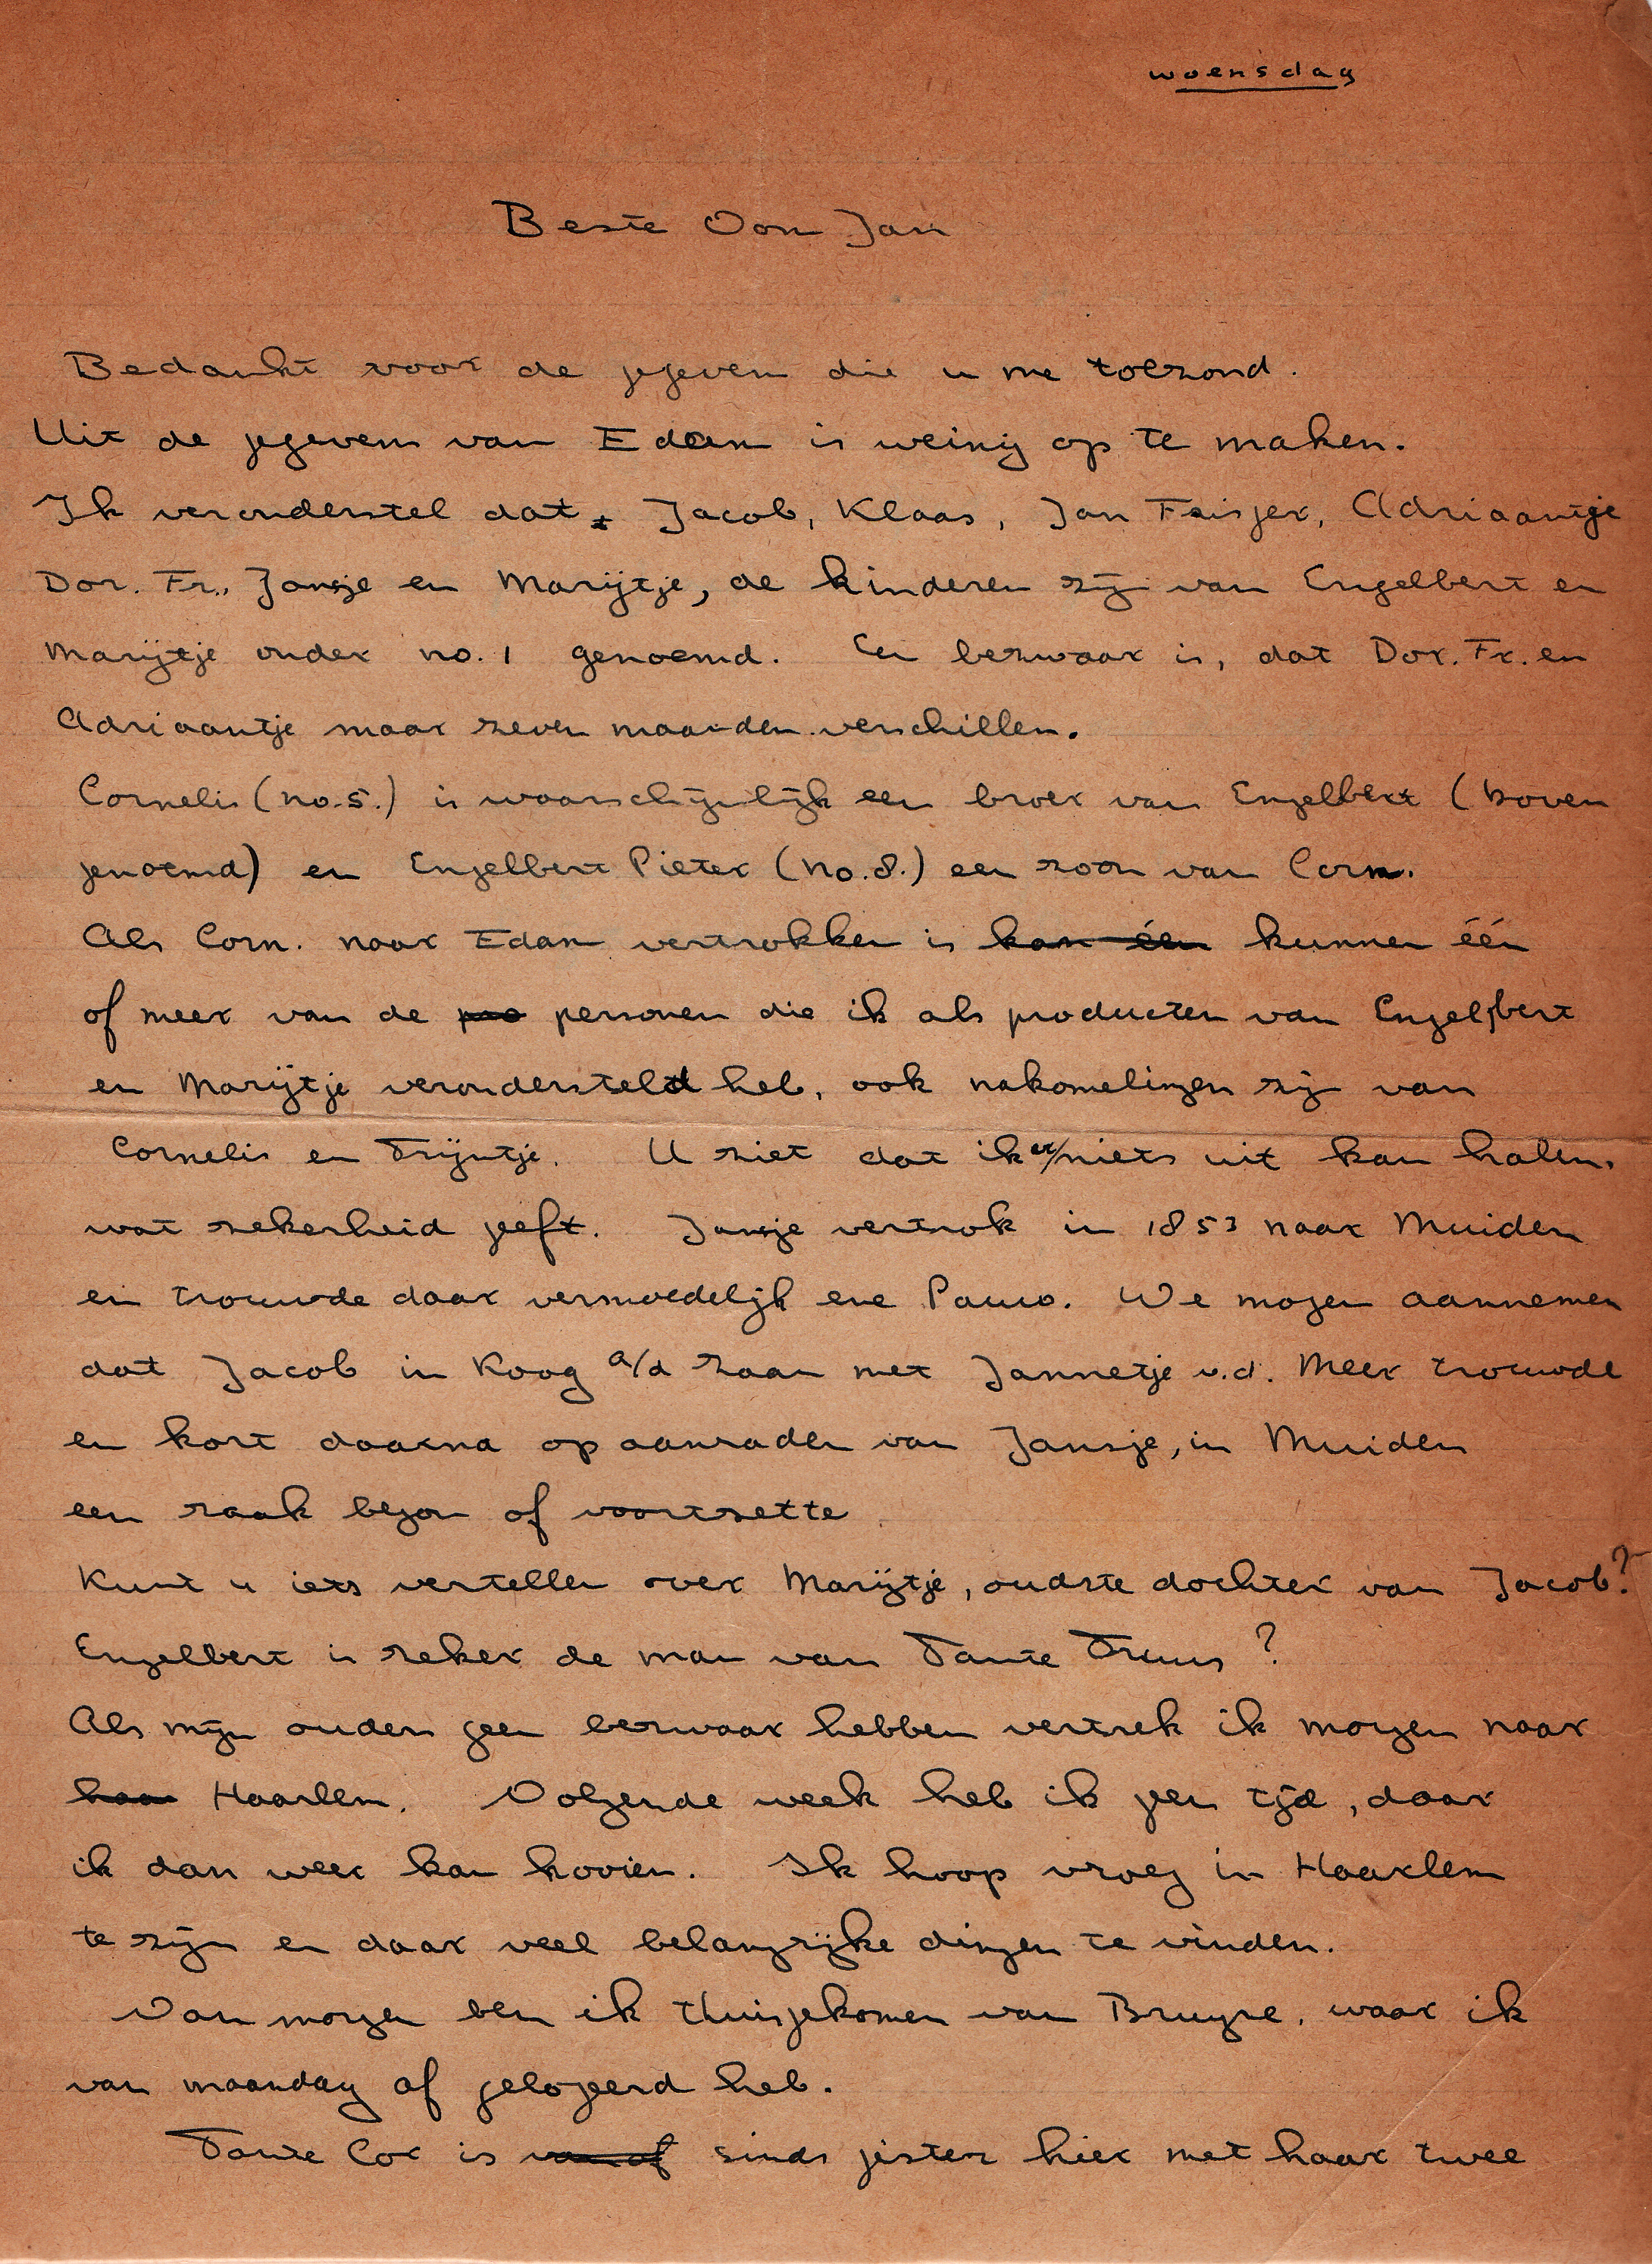 woensdag
Beste Oom Jan
Bedankt voor de gegeven die u me toezond.
Uit de gegevens van Edam is weinig op te maken.
Ik veronderstel dat Jacob, Klaas, Jan Feisjer, Adriaantje
Dor. Fr., Jansje en Marijtje, de kinderen zijn van Engelbert en
Marijtje onder no. 1 genoemd. Een bezwaar is, dat Dor. Fr. en
Adriaantje maar zeven maanden verschillen.
Cornelis (no. 5.) is waarschijnlijk een broer van Engelbert (boven
genoemd) en Engelbert Pieter (no. 8.) een zoon van Corn.
Als Corn. naar Edam vertrokken is kan één kunnen één
of meer van de pro personen die ik als producten van Engelbert
en Marijtje verondersteld heb, ook nakomelingen zijn van
Cornelis en Trijntje. U ziet dat ik er niets uit kan halen,
wat zekerheid geeft. Jansje vertrok in 1853 naar Muiden
en trouwde daar vermoedelijk ene Pauw. We mogen aannemen
dat Jacob in Koog a/d Zaan met Jannetje v.d. Meer trouwde
en kort daarna op aanraden van Jansje, in Muiden
een zaak begon of voortzette
Kunt u iets vertellen over Marijtje, oudste dochter van Jacob?
Engelbert is zeker de man van Tante Truus?
Als mijn ouders geen bezwaar hebben vertrek ik morgen naar
haa Haarlem. Volgende week heb ik geen tijd, daar
ik dan weer kan hooien. Ik hoop vroeg in Haarlem
te zijn en daar veel belangrijke dingen te vinden.
Van morgen ben ik thuisgekomen van Bruyne, waar ik
van maandag af gelogeerd heb.
Tante Cor is van af sinds gisteren hier met haar twee